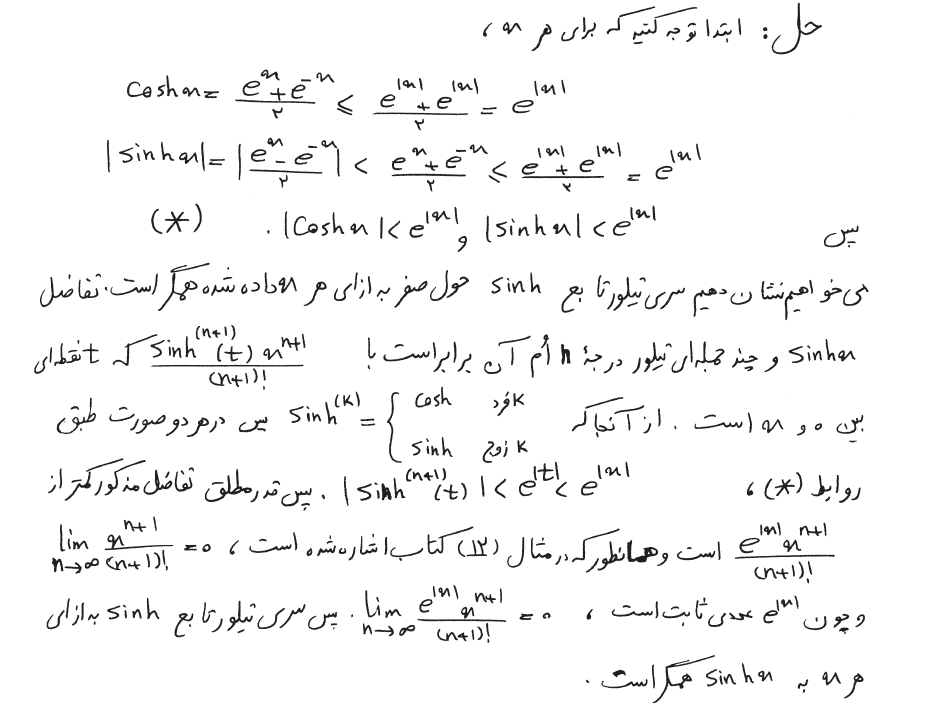 حل : ابتدا توجه کنید که برای هر x ،
cosh x = (e^x + e^-x)/۲ ⩽ (e^|x| + e^|x|)/۲ = e^|x|
|sinh x| = |(e^x - e^-x)/۲| < (e^x + e^-x)/۲ ⩽ (e^|x| + e^|x|)/۲ = e^|x|
پس |sinh x| < e^|x| و |cosh x| < e^|x| . (*)
می خواهیم نشان دهیم سری تیلور تابع sinh حول صفر به ازای هر x داده شده همگر است . تفاضل
sinh x و چند جمله ای تیلور درجهٔ n اُم آن برابر است با sinh^(n+1)(t) x^(n+1)/(n+1)! که t نقطه ای
بین ۰ و x است . از آنجا که sinh^(k) = { cosh k فرد , sinh k زوج پس در هر دو صورت طبق
روابط (*) ، |sinh^(n+1)(t)| < e^|t| < e^|x| . پس قدر مطلق تفاضل مذکور کمتر از
e^|x| x^(n+1)/(n+1)! است و همانطور که در مثال (۱۲) کتاب اشاره شده است ، lim n→∞ x^(n+1)/(n+1)! = ۰
و چون e^|x| عددی ثابت است ، lim n→∞ e^|x| x^(n+1)/(n+1)! = ۰ . پس سری تیلور تابع sinh به ازای
هر x به sinh x همگر است .